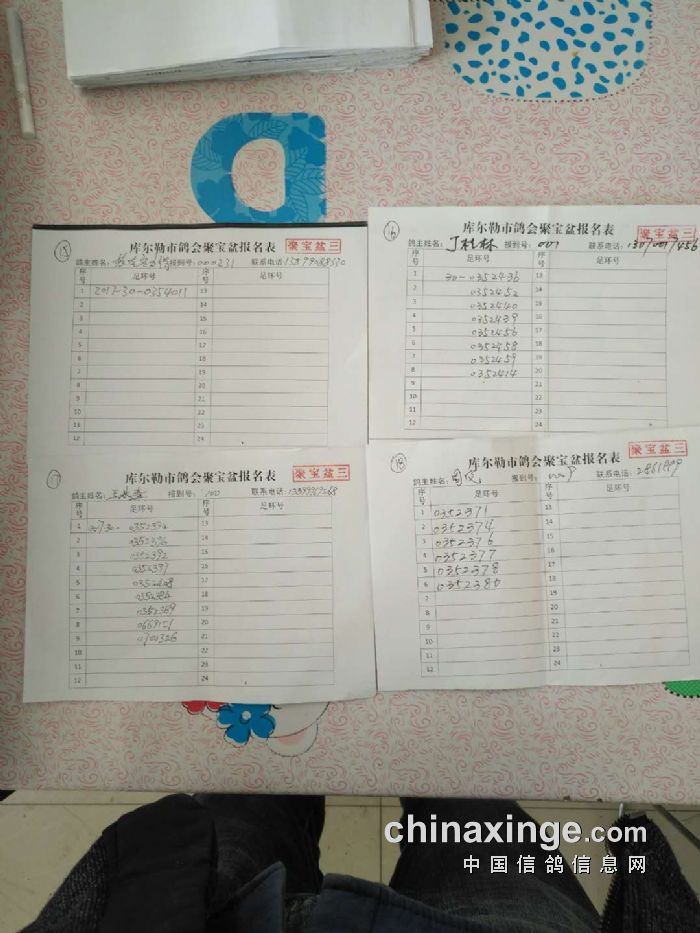 ⑮
库尔勒市鸽会聚宝盆报名表
聚宝盆三
鸽主姓名: 报到号: 000231 联系电话:
序号 足环号 序号 足环号
1 2017-30-0354011 13
2 14
3 15
4 16
5 17
6 18
7 19
8 20
9 21
10 22
11 23
12 24
⑯
库尔勒市鸽会聚宝盆报名表
聚宝盆三
鸽主姓名: 丁杜林 报到号: 001 联系电话:
序号 足环号 序号 足环号
1 30-0352436 13
2 0352452 14
3 0352440 15
4 0352439 16
5 0352456 17
6 0352458 18
7 0352459 19
8 0352414 20
9 21
10 22
11 23
12 24
⑰
库尔勒市鸽会聚宝盆报名表
聚宝盆三
鸽主姓名: 报到号: 联系电话:
序号 足环号 序号 足环号
1 13
2 14
3 0352392 15
4 0352397 16
5 17
6 0352384 18
7 0352389 19
8 20
9 0700326 21
10 22
11 23
12 24
⑱
库尔勒市鸽会聚宝盆报名表
聚宝盆三
鸽主姓名: 报到号: 联系电话:
序号 足环号 序号 足环号
1 0352371 13
2 0352374 14
3 0352376 15
4 0352377 16
5 0352378 17
6 0352380 18
7 19
8 20
9 21
10 22
11 23
12 24
chinaxinge.com
中国信鸽信息网